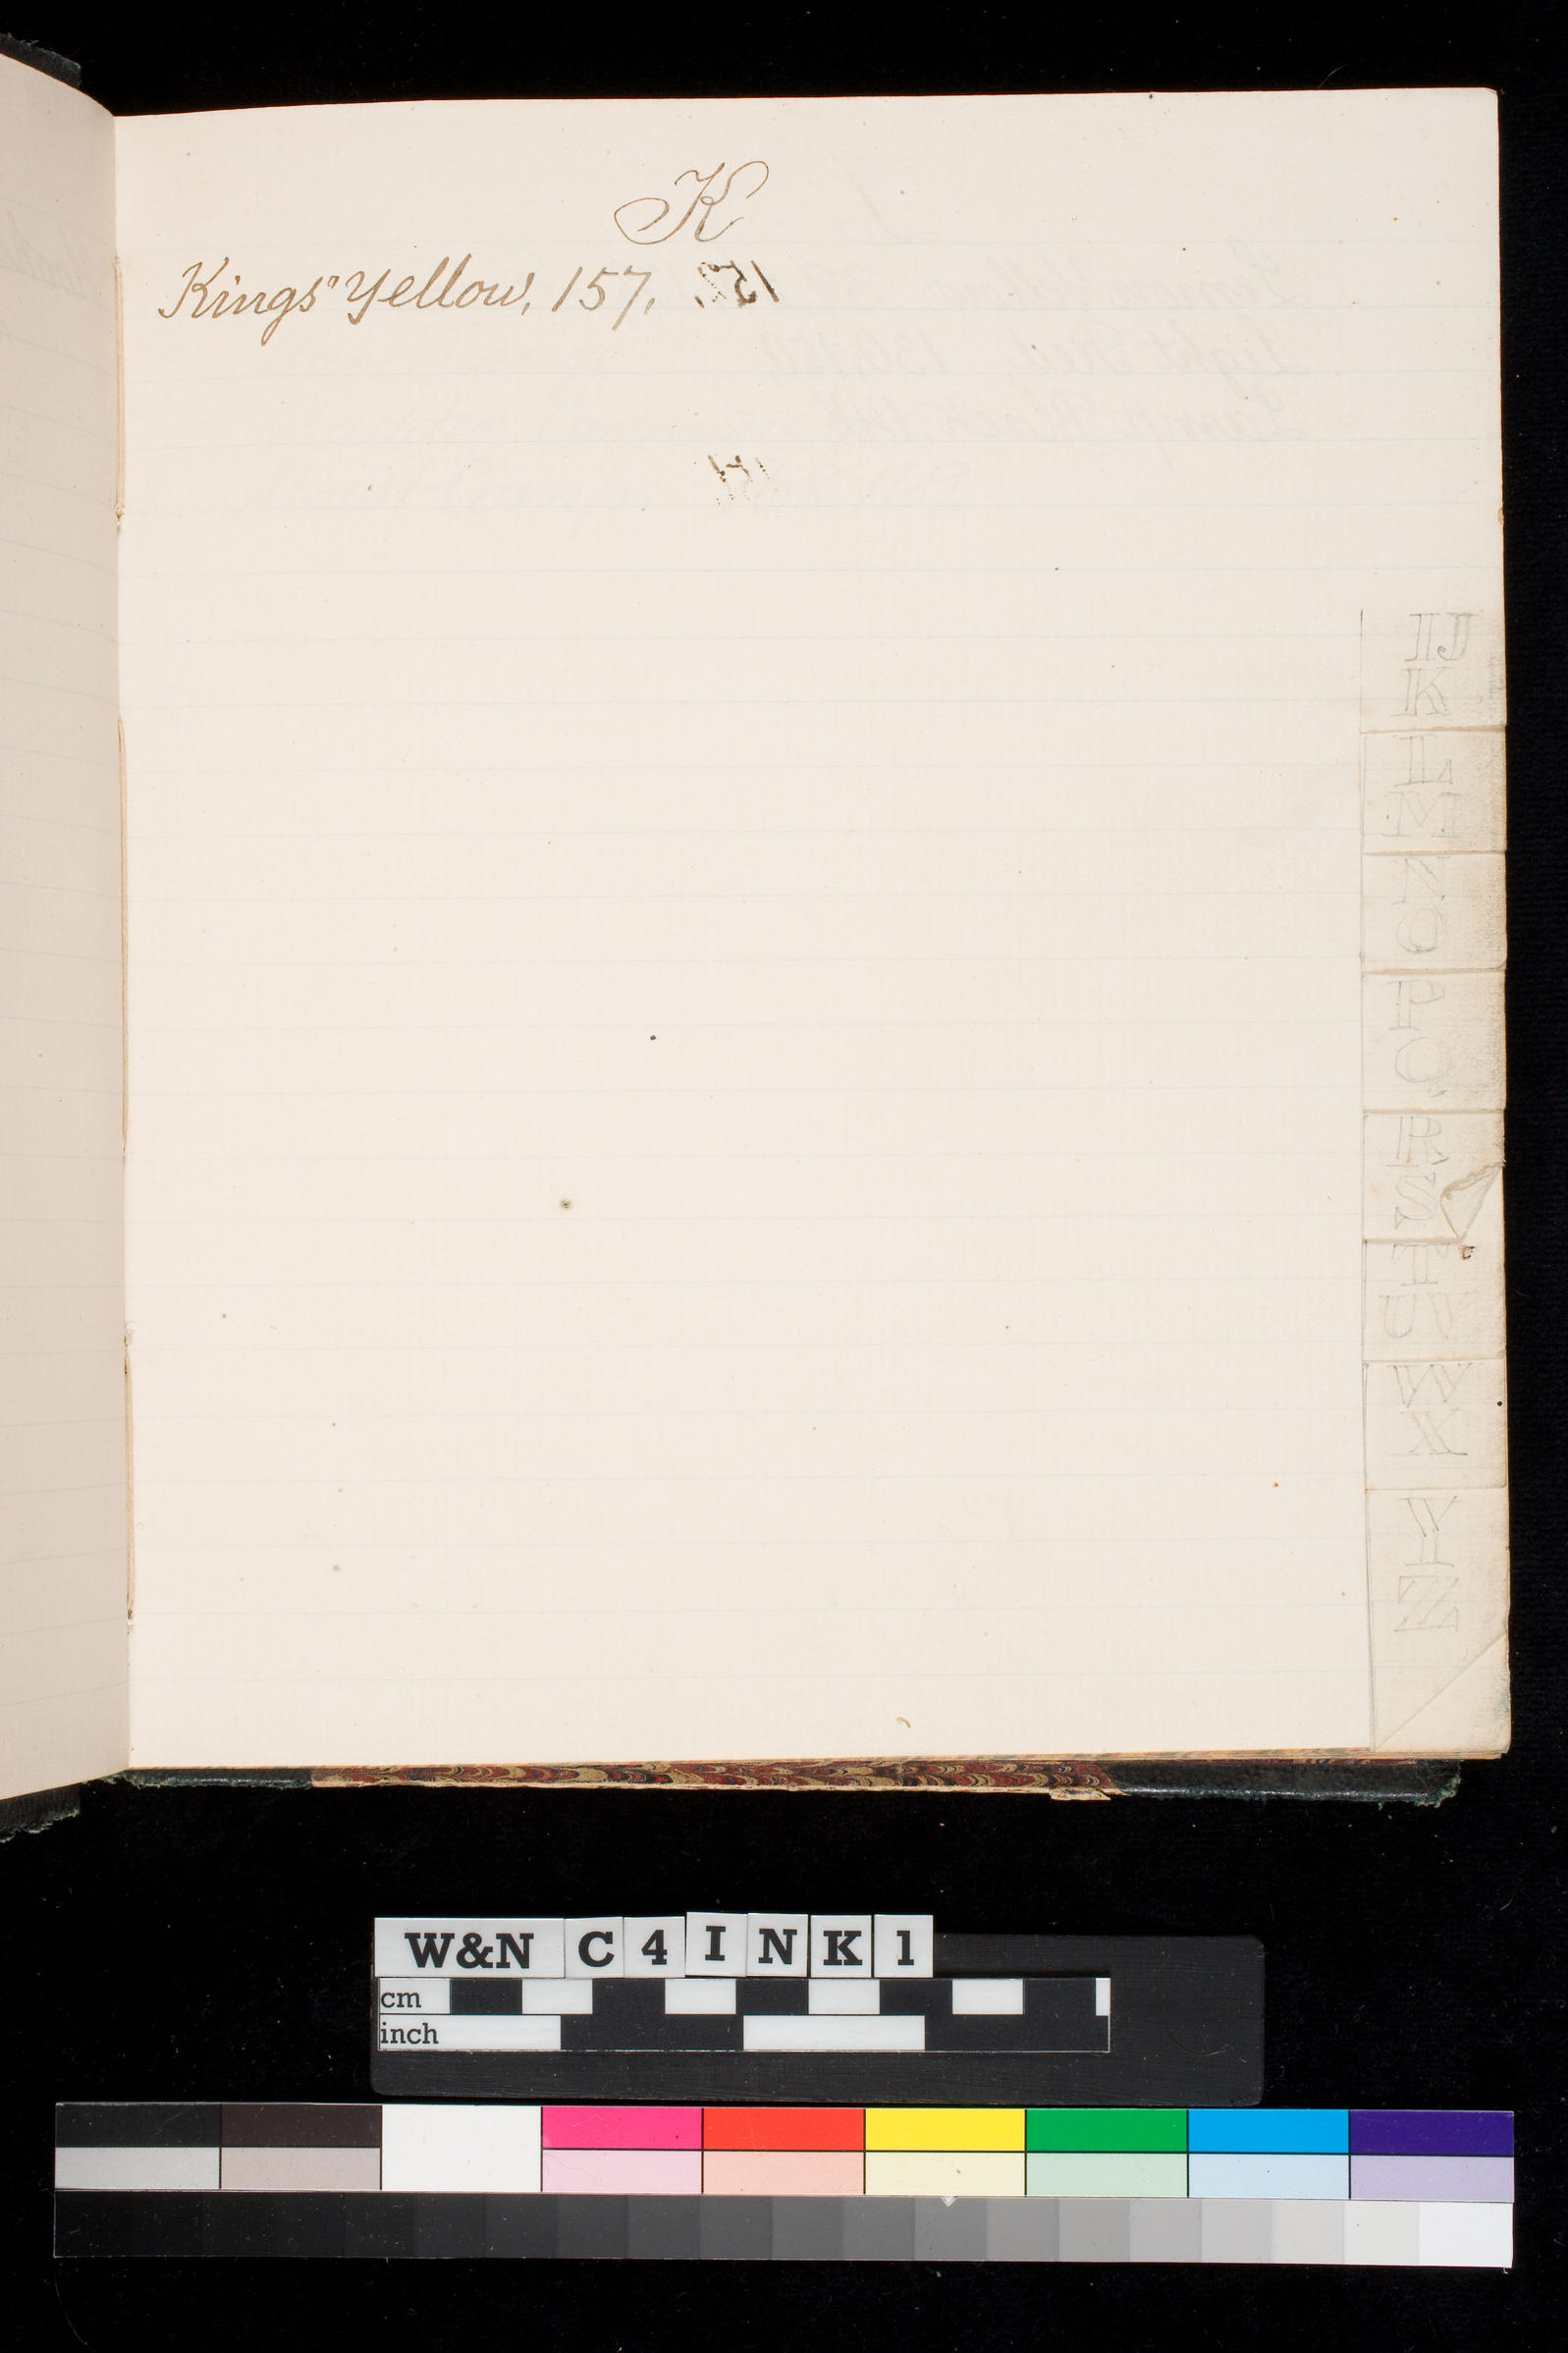 K
Kings' Yellow, 157,
IJ
K
L
M
N
O
P
Q
R
S
T
UV
W
X
Y
Z
W&N C 4 I N K 1
cm
inch